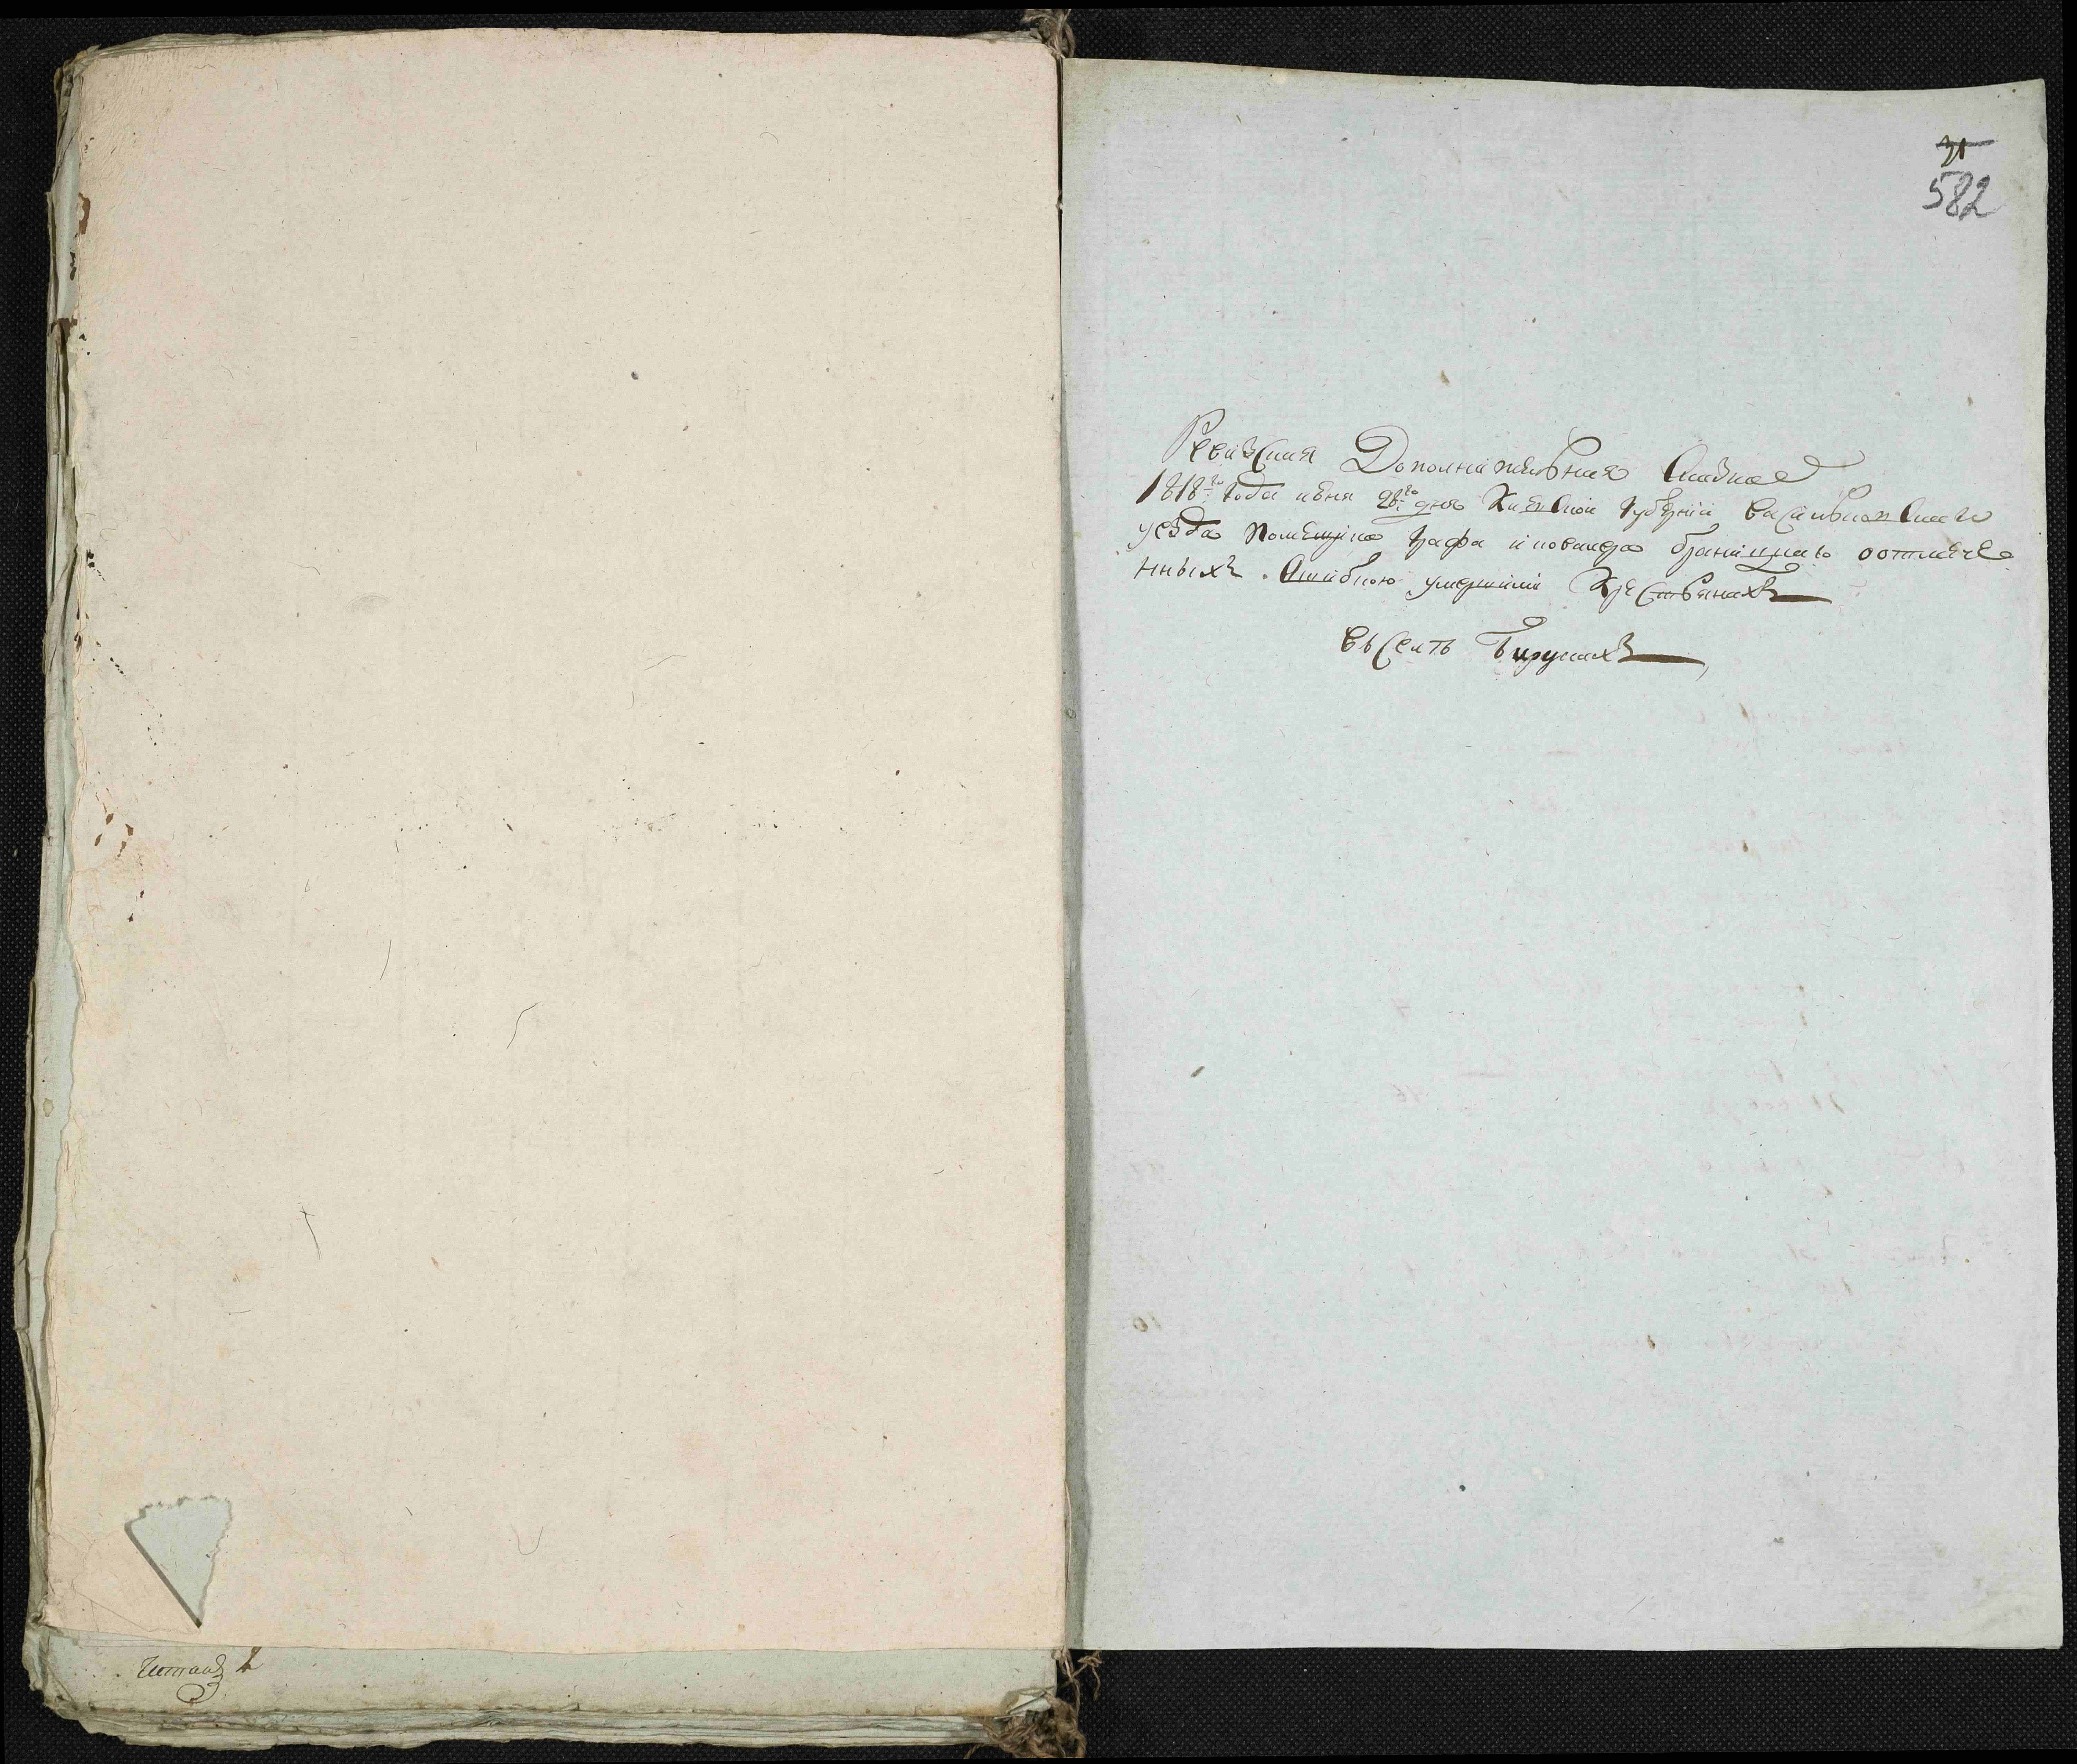 31
582
Ревизская Дополнительная Сказка
1818го года июня 28го дня Киевской губернии Васильковскаго
уезда помещика графа и кавалера браницкаго оотмече
нныхъ ошибкою умершими Крестьянахъ
въ селъ
Читалъ